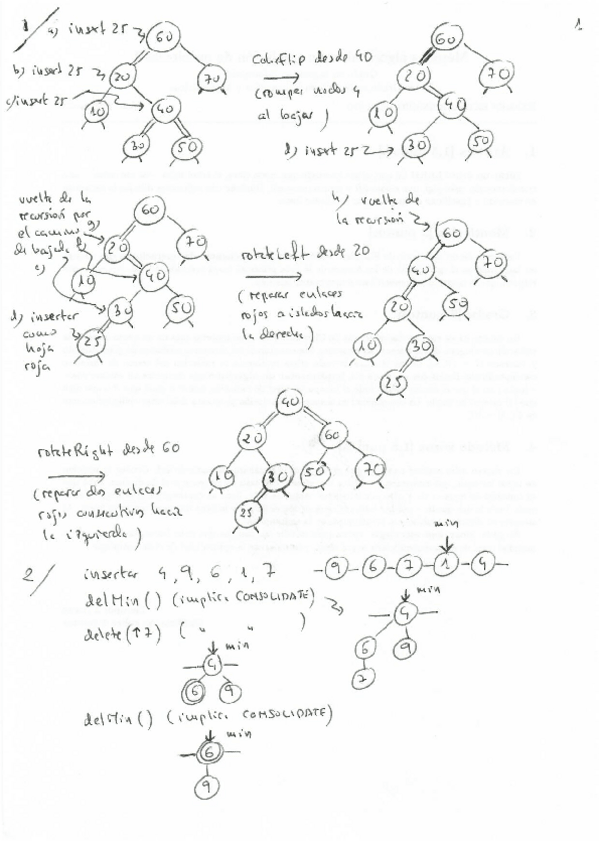 1/ a) insert 25
60
1
b) insert 25
20
70
c) insert 25
10
40
30
50
ColorFlip desde 40
(romper nodos 4
al bajar)
60
20
70
10
40
d) insert 25
30
50
vuelta de la
recursión por
el camino
de bajada
g)
f)
e)
60
20
70
10
40
30
50
25
d) insertar
como
hoja
roja
rotateLeft desde 20
(reparar enlaces
rojos aislados hacia
la derecha)
h) vuelta de
la recursión
60
40
70
20
50
10
30
25
rotateRight desde 60
(reparar dos enlaces
rojos consecutivos hacia
la izquierda)
40
20
60
10
30
50
70
25
2/ insertar 4, 9, 6, 1, 7
min
9 6 7 1 4
delMin() (implica CONSOLIDATE)
min
4
6 9
7
delete(↑7) ( " " )
min
4
6 9
delMin() (implica CONSOLIDATE)
min
6
9